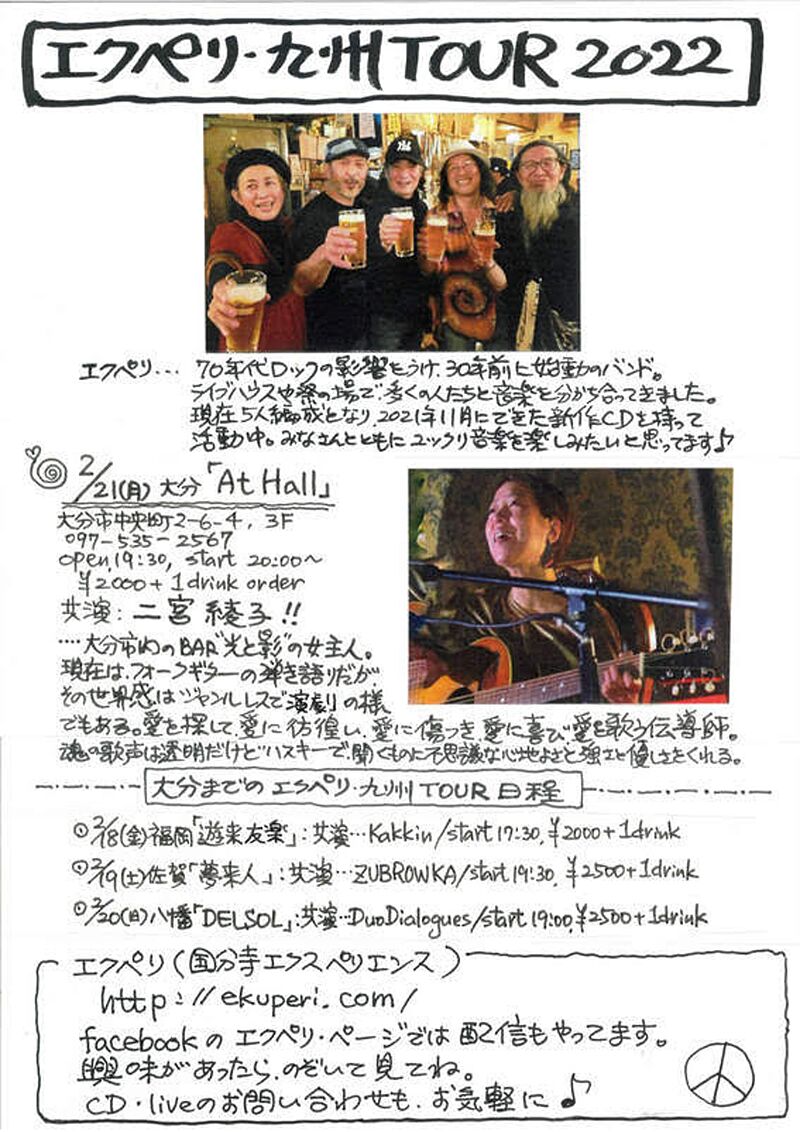 エクペリ・九州TOUR 2022
エクペリ… 70年代ロックの影響をうけ、30年前に始動のバンド。
ライブハウスや祭の場で、多くの人たちと音楽を分かち合ってきました。
現在5人編成となり、2021年11月にできた新作CDを持って
活動中。みなさんとともにユックリ音楽を楽しみたいと思ってます♪
2/21(月) 大分「At Hall」
大分市中央町2-6-4, 3F
097-535-2567
open,19:30, start 20:00〜
¥2000+1drink order
共演:二宮綾子!!
…大分市内のBAR"光と影"の女主人。
現在は、フォークギターの弾き語りだが、
その世界感はジャンルレスで「演劇」の様
でもある。愛を探して、愛に彷徨い、愛に傷つき、愛に喜び愛を歌う伝導師。
魂の歌声は透明だけどハスキーで、聞くものに不思議な心地よさと強さと優しさをくれる。
大分までのエクペリ・九州TOUR日程
2/18(金)福岡「遊来友楽」:共演…Kakkin/start 17:30,¥2000+1drink
2/19(土)佐賀「夢来人」:共演…ZUBROWKA/start 19:30,¥2500+1drink
2/20(日)八幡「DELSOL」:共演…DuoDialogues/start 19:00,¥2500+1drink
エクペリ(国分寺エクスペリエンス)
http://ekuperi.com/
facebookのエクペリ・ページでは配信もやってます。
興味があったら、のぞいて見てね。
CD・liveのお問い合わせも、お気軽に♪